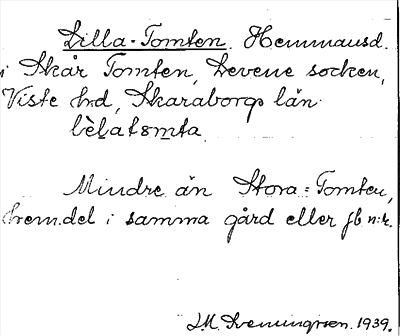 Lilla-Tomten. Hemmansd.
i Skår Tomten, Levene socken,
Viste hd, Skaraborgs län
lèlatǫmta
Mindre än Stora-Tomten,
hemdel i samma gård eller jb nr.
1939.